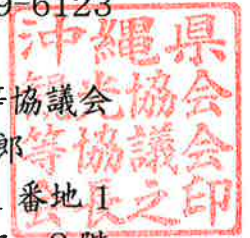 9-6123
等協議会
郎
番地1
階
沖縄県
観光協会
等協議会
会長之印